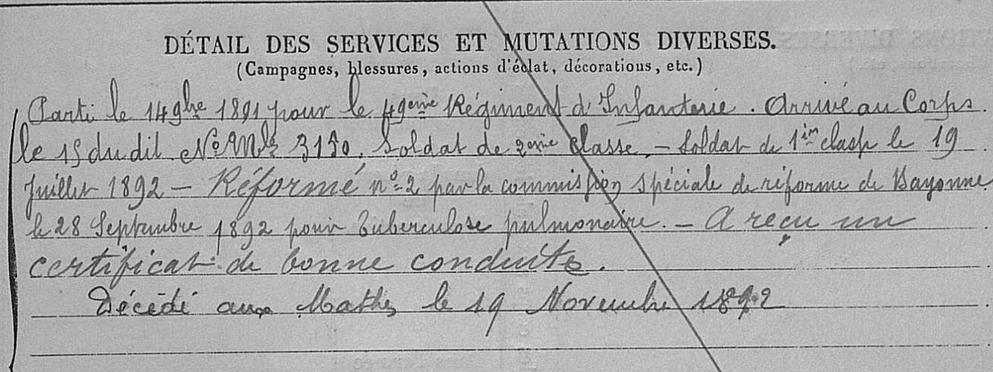 DÉTAIL DES SERVICES ET MUTATIONS DIVERSES.
(Campagnes, blessures, actions d'éclat, décorations, etc.)
Parti le 14 9bre 1891 pour le 49eme Régiment d'Infanterie. Arrivé au Corps
le 15 dudit. No Mle 3150. Soldat de 2eme classe. — Soldat de 1ère classe le 19
Juillet 1892 — Réformé no 2 par la commission spéciale de réforme de Bayonne
le 28 Septembre 1892 pour tuberculose pulmonaire. — A reçu un
certificat de bonne conduite.
Décédé aux Mathes le 19 Novembre 1892